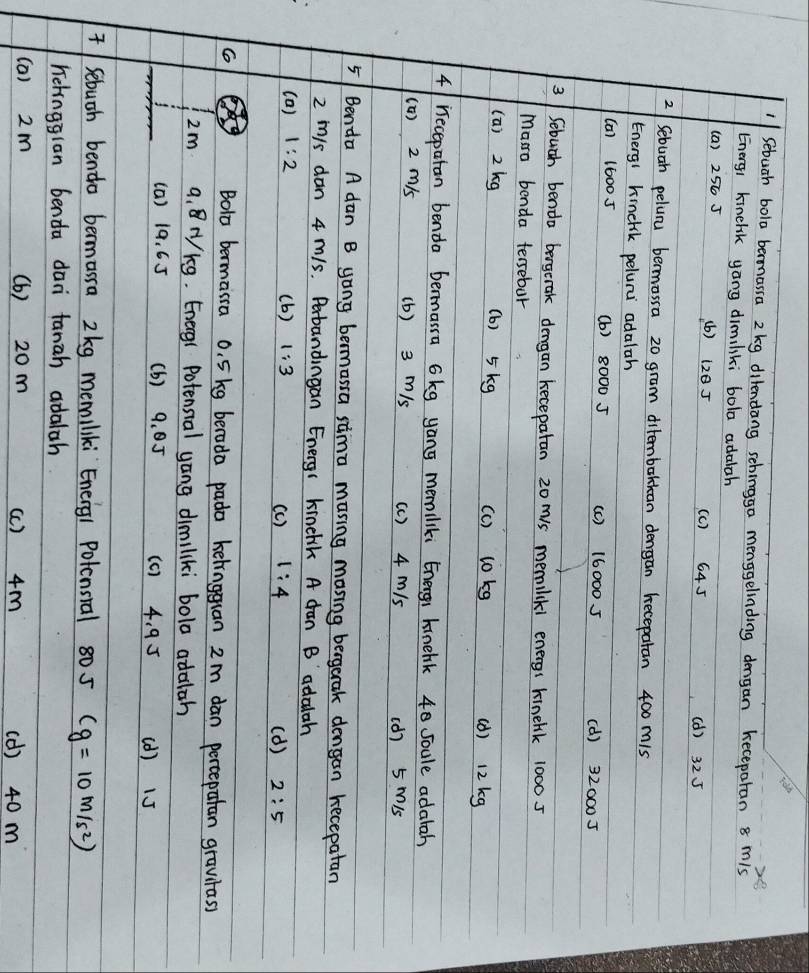 Fold
1 Sebuah bola bermassa 2 kg ditendang sehingga menggelinding dengan kecepatan 8 m/s
Energi kinetik yang dimiliki bola adalah
(a) 256 J (b) 128 J (c) 64 J (d) 32 J
2 Sebuah peluru bermassa 20 gram ditembakkan dengan kecepatan 400 m/s
Energi kinetik peluru adalah
(a) 1600 J (b) 8000 J (c) 16000 J (d) 32000 J
3 Sebuah benda bergerak dengan kecepatan 20 m/s memiliki energi kinetik 1000 J
Massa benda tersebut
(a) 2 kg (b) 5 kg (c) 10 kg (d) 12 kg
4 Kecepatan benda bermassa 6 kg yang memiliki Energi kinetik 48 Joule adalah
(a) 2 m/s (b) 3 m/s (c) 4 m/s (d) 5 m/s
5 Benda A dan B yang bermassa sama masing masing bergerak dengan kecepatan
2 m/s dan 4 m/s. Perbandingan Energi kinetik A dan B adalah
(a) 1:2 (b) 1:3 (c) 1:4 (d) 2:5
6 Bola bermassa 0,5 kg berada pada ketinggian 2 m dan percepatan gravitasi
2 m 9,8 N/kg. Energi Potensial yang dimiliki bola adalah
(a) 19,6 J (b) 9,8 J (c) 4,9 J (d) 1 J
7 Sebuah benda bermassa 2 kg memiliki Energi Potensial 80 J (g = 10 m/s²)
Ketinggian benda dari tanah adalah
(a) 2 m (b) 20 m (c) 4 m (d) 40 m